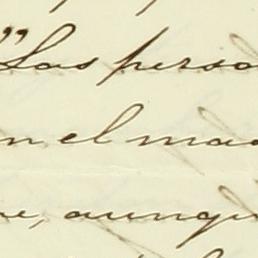 "Las perso
n el ma
ue, aunqu